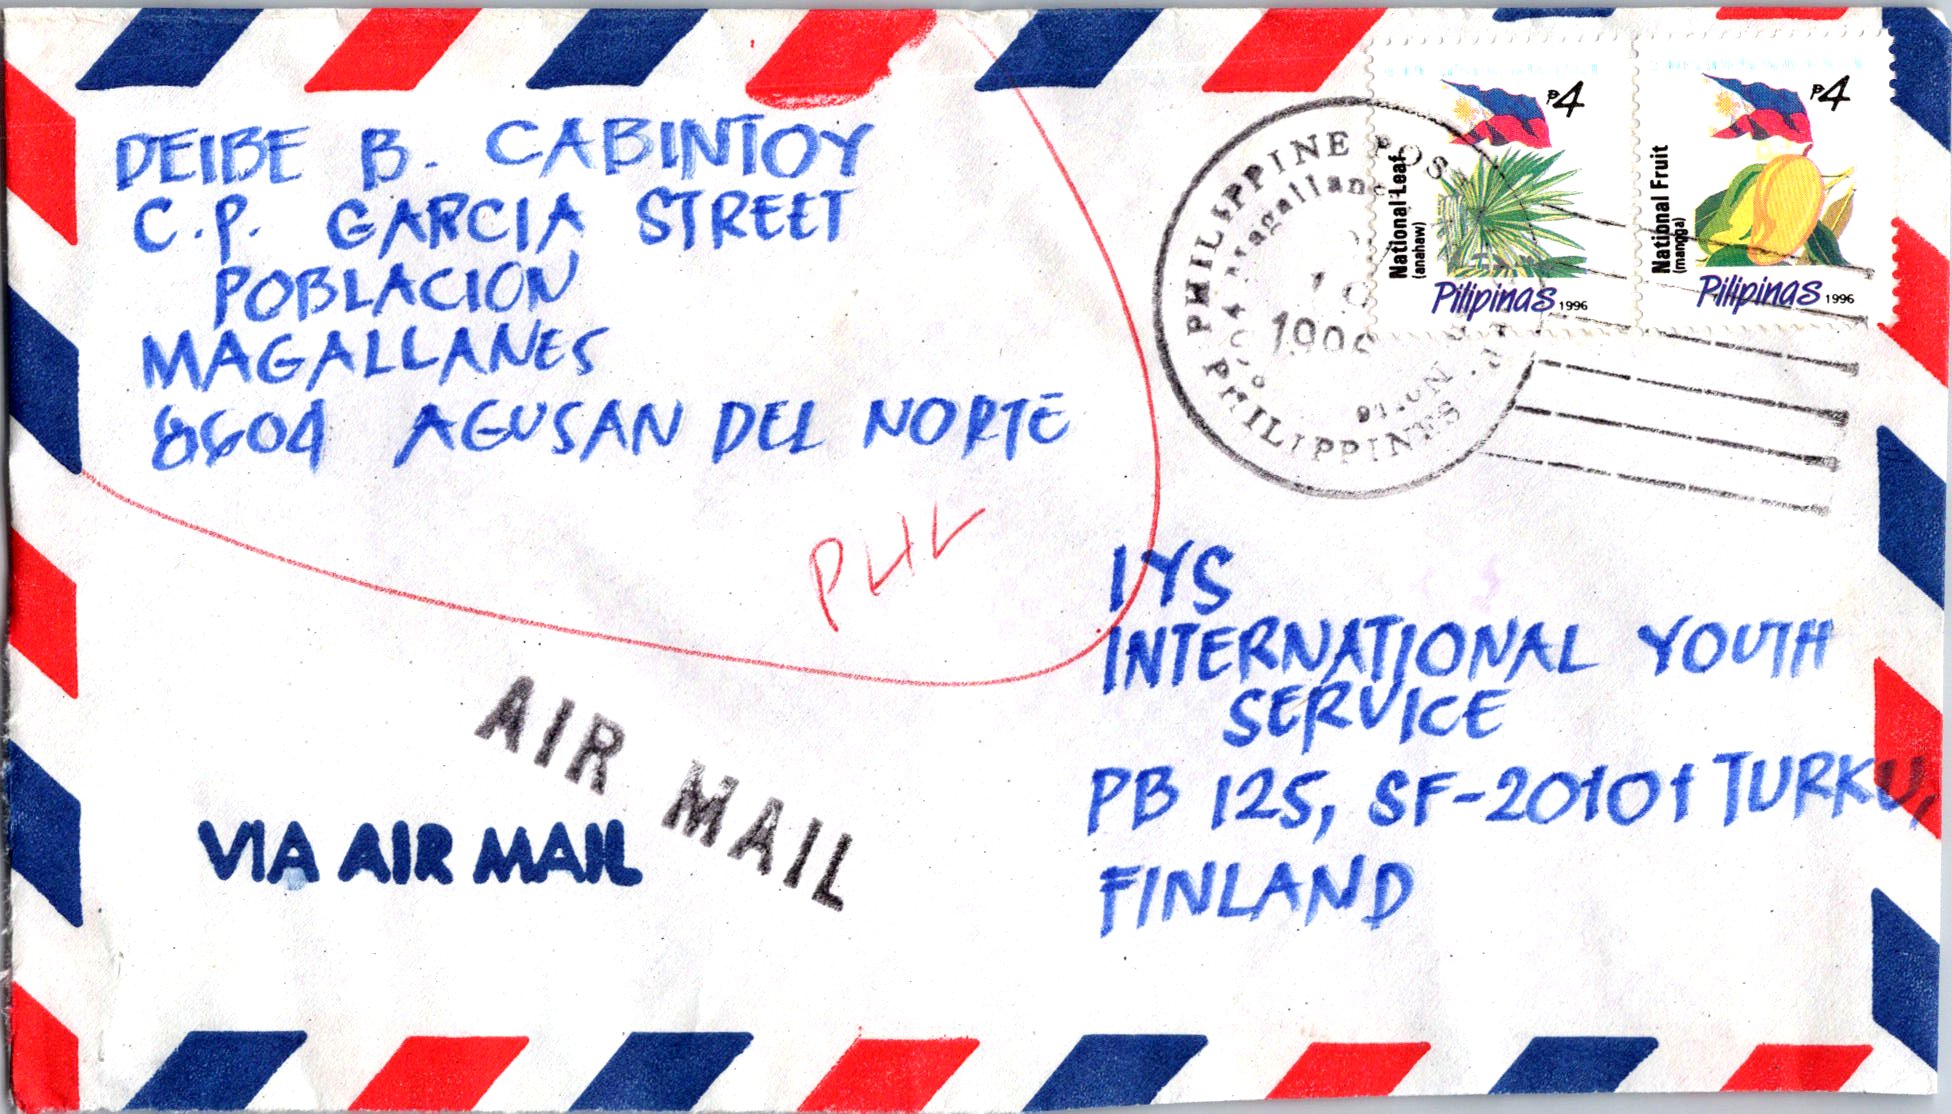 DEIBE B. CABINTOY
C.P. GARCIA STREET
POBLACION
MAGALLANES
8604 AGUSAN DEL NORTE
PHL
AIR MAIL
VIA AIR MAIL
₱4
National Leaf
(anahaw)
Pilipinas 1996
₱4
National Fruit
(mangga)
Pilipinas 1996
PHILIPPINE
PHILIPPINES
IYS
INTERNATIONAL YOUTH
SERVICE
PB 125, SF-20101 TURKU,
FINLAND